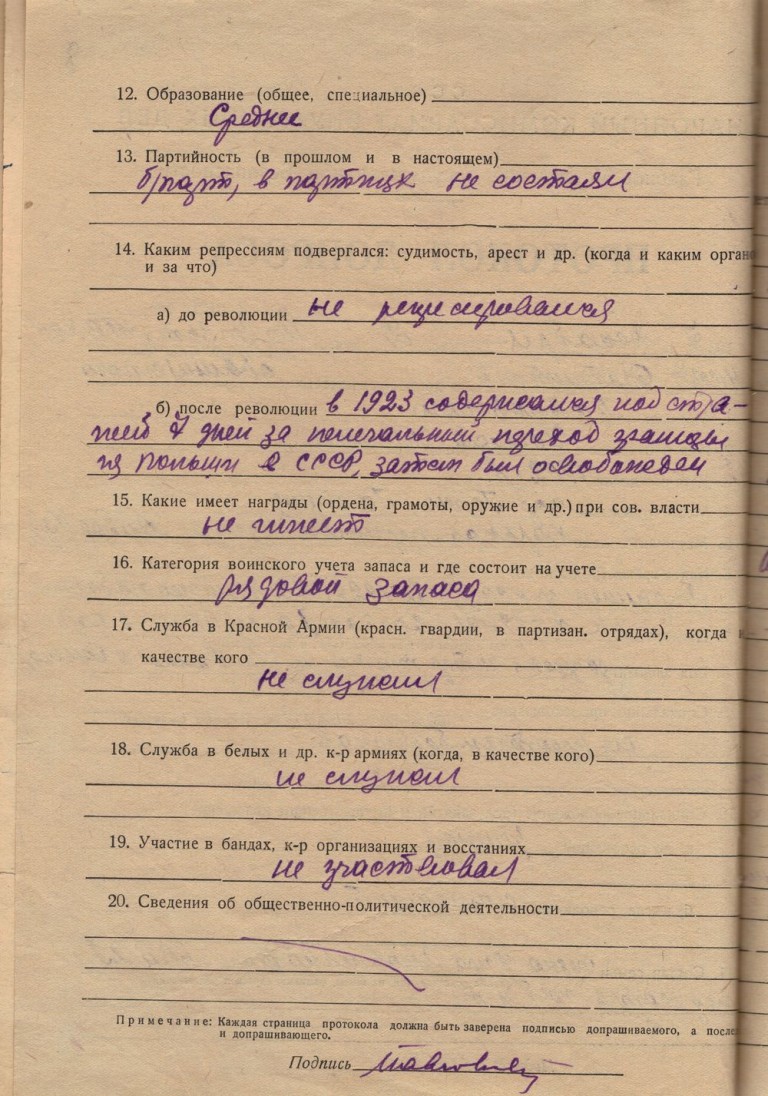 12. Образование (общее, специальное)
Среднее
13. Партийность (в прошлом и в настоящем)
б/парт, в партиях не состоял
14. Каким репрессиям подвергался: судимость, арест и др. (когда и каким орган
и за что)
а) до революции не репресировался
б) после революции в 1923 содержался под стра-
жей 7 дней за нелегальный переход границы
из Польши в СССР, затем был освобожден
15. Какие имеет награды (ордена, грамоты, оружие и др.) при сов. власти
не имеет
16. Категория воинского учета запаса и где состоит на учете
рядовой запаса
17. Служба в Красной Армии (красн. гвардии, в партизан. отрядах), когда
качестве кого
не служил
18. Служба в белых и др. к-р армиях (когда, в качестве кого)
не служил
19. Участие в бандах, к-р организациях и восстаниях
не участвовал
20. Сведения об общественно-политической деятельности
Примечание: Каждая страница протокола должна быть заверена подписью допрашиваемого, а после
и допрашивающего.
Подпись